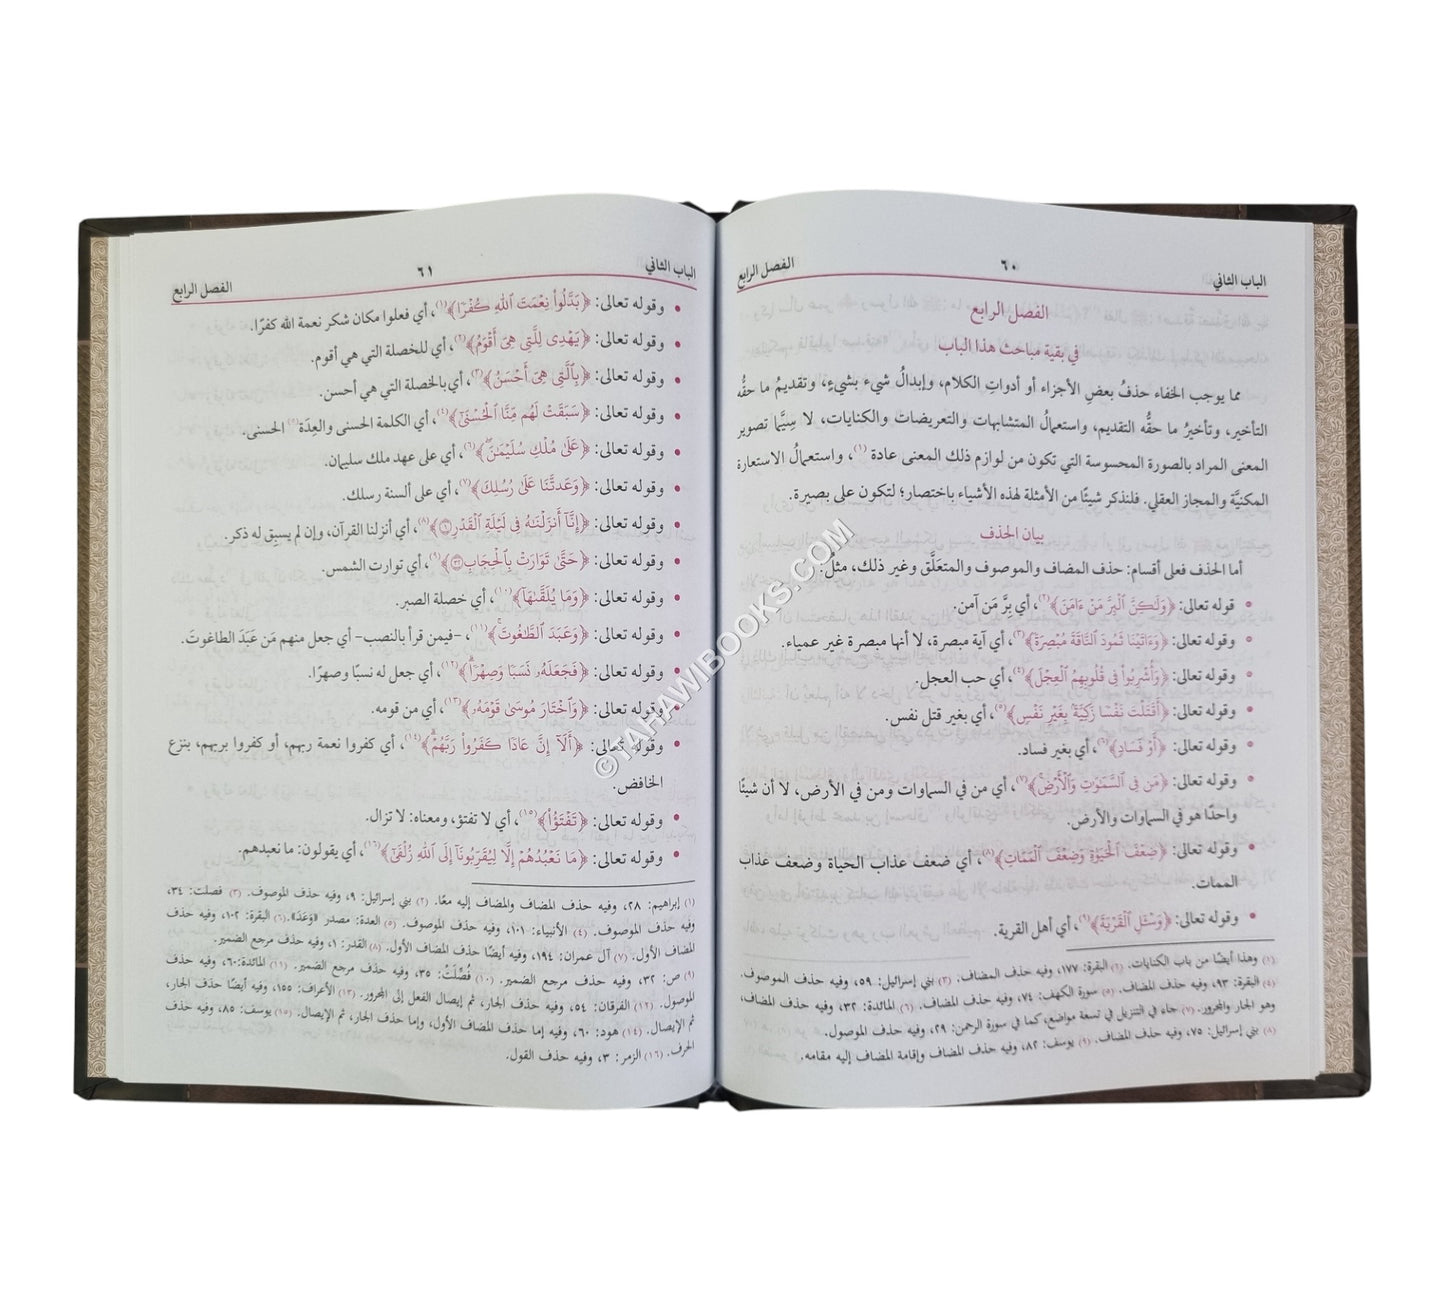 الباب الثاني ٦٠ الفصل الرابع
الفصل الرابع
في بقية مباحث هذا الباب
مما يوجب الخفاء حذفُ بعضِ الأجزاء أو أدواتِ الكلام، وإبدالُ شيء بشيءٍ، وتقديمُ ما حقُّه
التأخير، وتأخيرُ ما حقُّه التقديم، واستعمالُ المتشابهات والتعريضات والكنايات، لا سِيَّما تصوير
المعنى المراد بالصورة المحسوسة التي تكون من لوازم ذلك المعنى عادة (١)، واستعمالُ الاستعارة
المكنيَّة والمجاز العقلي. فلنذكر شيئًا من الأمثلة لهذه الأشياء باختصار؛ لتكون على بصيرة.
بيان الحذف
أما الحذف فعلى أقسام: حذف المضاف والموصوف والمتعَلَّق وغير ذلك، مثلُ:
• قوله تعالى: ﴿وَلَـٰكِنَّ ٱلْبِرَّ مَنْ ءَامَنَ﴾(٢)، أي بِرَّ مَن آمن.
• وقوله تعالى: ﴿وَءَاتَيْنَا ثَمُودَ ٱلنَّاقَةَ مُبْصِرَةً﴾(٣)، أي آية مبصرة، لا أنها مبصرة غير عمياء.
• وقوله تعالى: ﴿وَأُشْرِبُواْ فِى قُلُوبِهِمُ ٱلْعِجْلَ﴾(٤)، أي حب العجل.
• وقوله تعالى: ﴿أَقَتَلْتَ نَفْسًا زَكِيَّةَۢ بِغَيْرِ نَفْسٍ﴾(٥)، أي بغير قتل نفس.
• وقوله تعالى: ﴿أَوْ فَسَادٍ﴾(٦)، أي بغير فساد.
• وقوله تعالى: ﴿مَن فِى ٱلسَّمَـٰوَٰتِ وَٱلْأَرْضِ﴾(٧)، أي من في السماوات ومن في الأرض، لا أن شيئًا
واحدًا هو في السماوات والأرض.
• وقوله تعالى: ﴿ضِعْفَ ٱلْحَيَوٰةِ وَضِعْفَ ٱلْمَمَاتِ﴾(٨)، أي ضعف عذاب الحياة وضعف عذاب
الممات.
• وقوله تعالى: ﴿وَسْـَٔلِ ٱلْقَرْيَةَ﴾(٩)، أي أهل القرية.
(١) وهذا أيضًا من باب الكنايات. (٢) البقرة: ١٧٧، وفيه حذف المضاف. (٣) بني إسرائيل: ٥٩، وفيه حذف الموصوف.
(٤) البقرة: ٩٣، وفيه حذف المضاف. (٥) سورة الكهف: ٧٤، وفيه حذف المضاف. (٦) المائدة: ٣٢، وفيه حذف المضاف،
وهو الجار والمجرور. (٧) جاء في التنزيل في تسعة مواضع، كما في سورة الرحمن: ٢٩، وفيه حذف الموصول.
(٨) بني إسرائيل: ٧٥، وفيه حذف المضاف. (٩) يوسف: ٨٢، وفيه حذف المضاف وإقامة المضاف إليه مقامه.
الباب الثاني ٦١ الفصل الرابع
• وقوله تعالى: ﴿بَدَّلُواْ نِعْمَتَ ٱللَّهِ كُفْرًا﴾(١)، أي فعلوا مكان شكر نعمة الله كفرًا.
• وقوله تعالى: ﴿يَهْدِى لِلَّتِى هِىَ أَقْوَمُ﴾(٢)، أي للخصلة التي هي أقوم.
• وقوله تعالى: ﴿بِٱلَّتِى هِىَ أَحْسَنُ﴾(٣)، أي بالخصلة التي هي أحسن.
• وقوله تعالى: ﴿سَبَقَتْ لَهُم مِّنَّا ٱلْحُسْنَىٰٓ﴾(٤)، أي الكلمة الحسنى والعِدَة(٥) الحسنى.
• وقوله تعالى: ﴿عَلَىٰ مُلْكِ سُلَيْمَـٰنَ﴾(٦)، أي على عهد ملك سليمان.
• وقوله تعالى: ﴿وَعَدتَّنَا عَلَىٰ رُسُلِكَ﴾(٧)، أي على ألسنة رسلك.
• وقوله تعالى: ﴿إِنَّآ أَنزَلْنَـٰهُ فِى لَيْلَةِ ٱلْقَدْرِ ١﴾(٨)، أي أنزلنا القرآن، وإن لم يسبِق له ذكر.
• وقوله تعالى: ﴿حَتَّىٰ تَوَارَتْ بِٱلْحِجَابِ ٣٢﴾(٩)، أي توارت الشمس.
• وقوله تعالى: ﴿وَمَا يُلَقَّىٰهَآ﴾(١٠)، أي خصلة الصبر.
• وقوله تعالى: ﴿وَعَبَدَ ٱلطَّـٰغُوتَ﴾(١١)، -فيمن قرأ بالنصب- أي جعل منهم مَن عَبَدَ الطاغوتَ.
• وقوله تعالى: ﴿فَجَعَلَهُۥ نَسَبًا وَصِهْرًا﴾(١٢)، أي جعل له نسبًا وصهرًا.
• وقوله تعالى: ﴿وَٱخْتَارَ مُوسَىٰ قَوْمَهُۥ﴾(١٣)، أي من قومه.
• وقوله تعالى: ﴿أَلَآ إِنَّ عَادًا كَفَرُواْ رَبَّهُمْ﴾(١٤)، أي كفروا نعمة ربهم، أو كفروا بربهم، بنزع
الخافض.
• وقوله تعالى: ﴿تَفْتَؤُاْ﴾(١٥)، أي لا تفتؤ، ومعناه: لا تزال.
• وقوله تعالى: ﴿مَا نَعْبُدُهُمْ إِلَّا لِيُقَرِّبُونَآ إِلَى ٱللَّهِ زُلْفَىٰٓ﴾(١٦)، أي يقولون: ما نعبدهم.
(١) إبراهيم: ٢٨، وفيه حذف المضاف والمضاف إليه معًا. (٢) بني إسرائيل: ٩، وفيه حذف الموصوف. (٣) فصلت: ٣٤،
وفيه حذف الموصوف. (٤) الأنبياء: ١٠١، وفيه حذف الموصوف. (٥) العدة: مصدر «وَعَدَ». (٦) البقرة: ١٠٢، وفيه حذف
المضاف الأول. (٧) آل عمران: ١٩٤، وفيه أيضًا حذف المضاف الأول. (٨) القدر: ١، وفيه حذف مرجع الضمير.
(٩) ص: ٣٢، وفيه حذف مرجع الضمير. (١٠) فُصِّلَتْ: ٣٥، وفيه حذف مرجع الضمير. (١١) المائدة: ٦٠، وفيه حذف
الموصول. (١٢) الفرقان: ٥٤، وفيه حذف الجار، ثم إيصال الفعل إلى المجرور. (١٣) الأعراف: ١٥٥، وفيه أيضًا حذف الجار،
ثم الإيصال. (١٤) هود: ٦٠، وفيه إما حذف المضاف الأول، وإما حذف الجار، ثم الإيصال. (١٥) يوسف: ٨٥، وفيه حذف
الحرف. (١٦) الزمر: ٣، وفيه حذف القول.
©TAHAWIBOOKS.COM